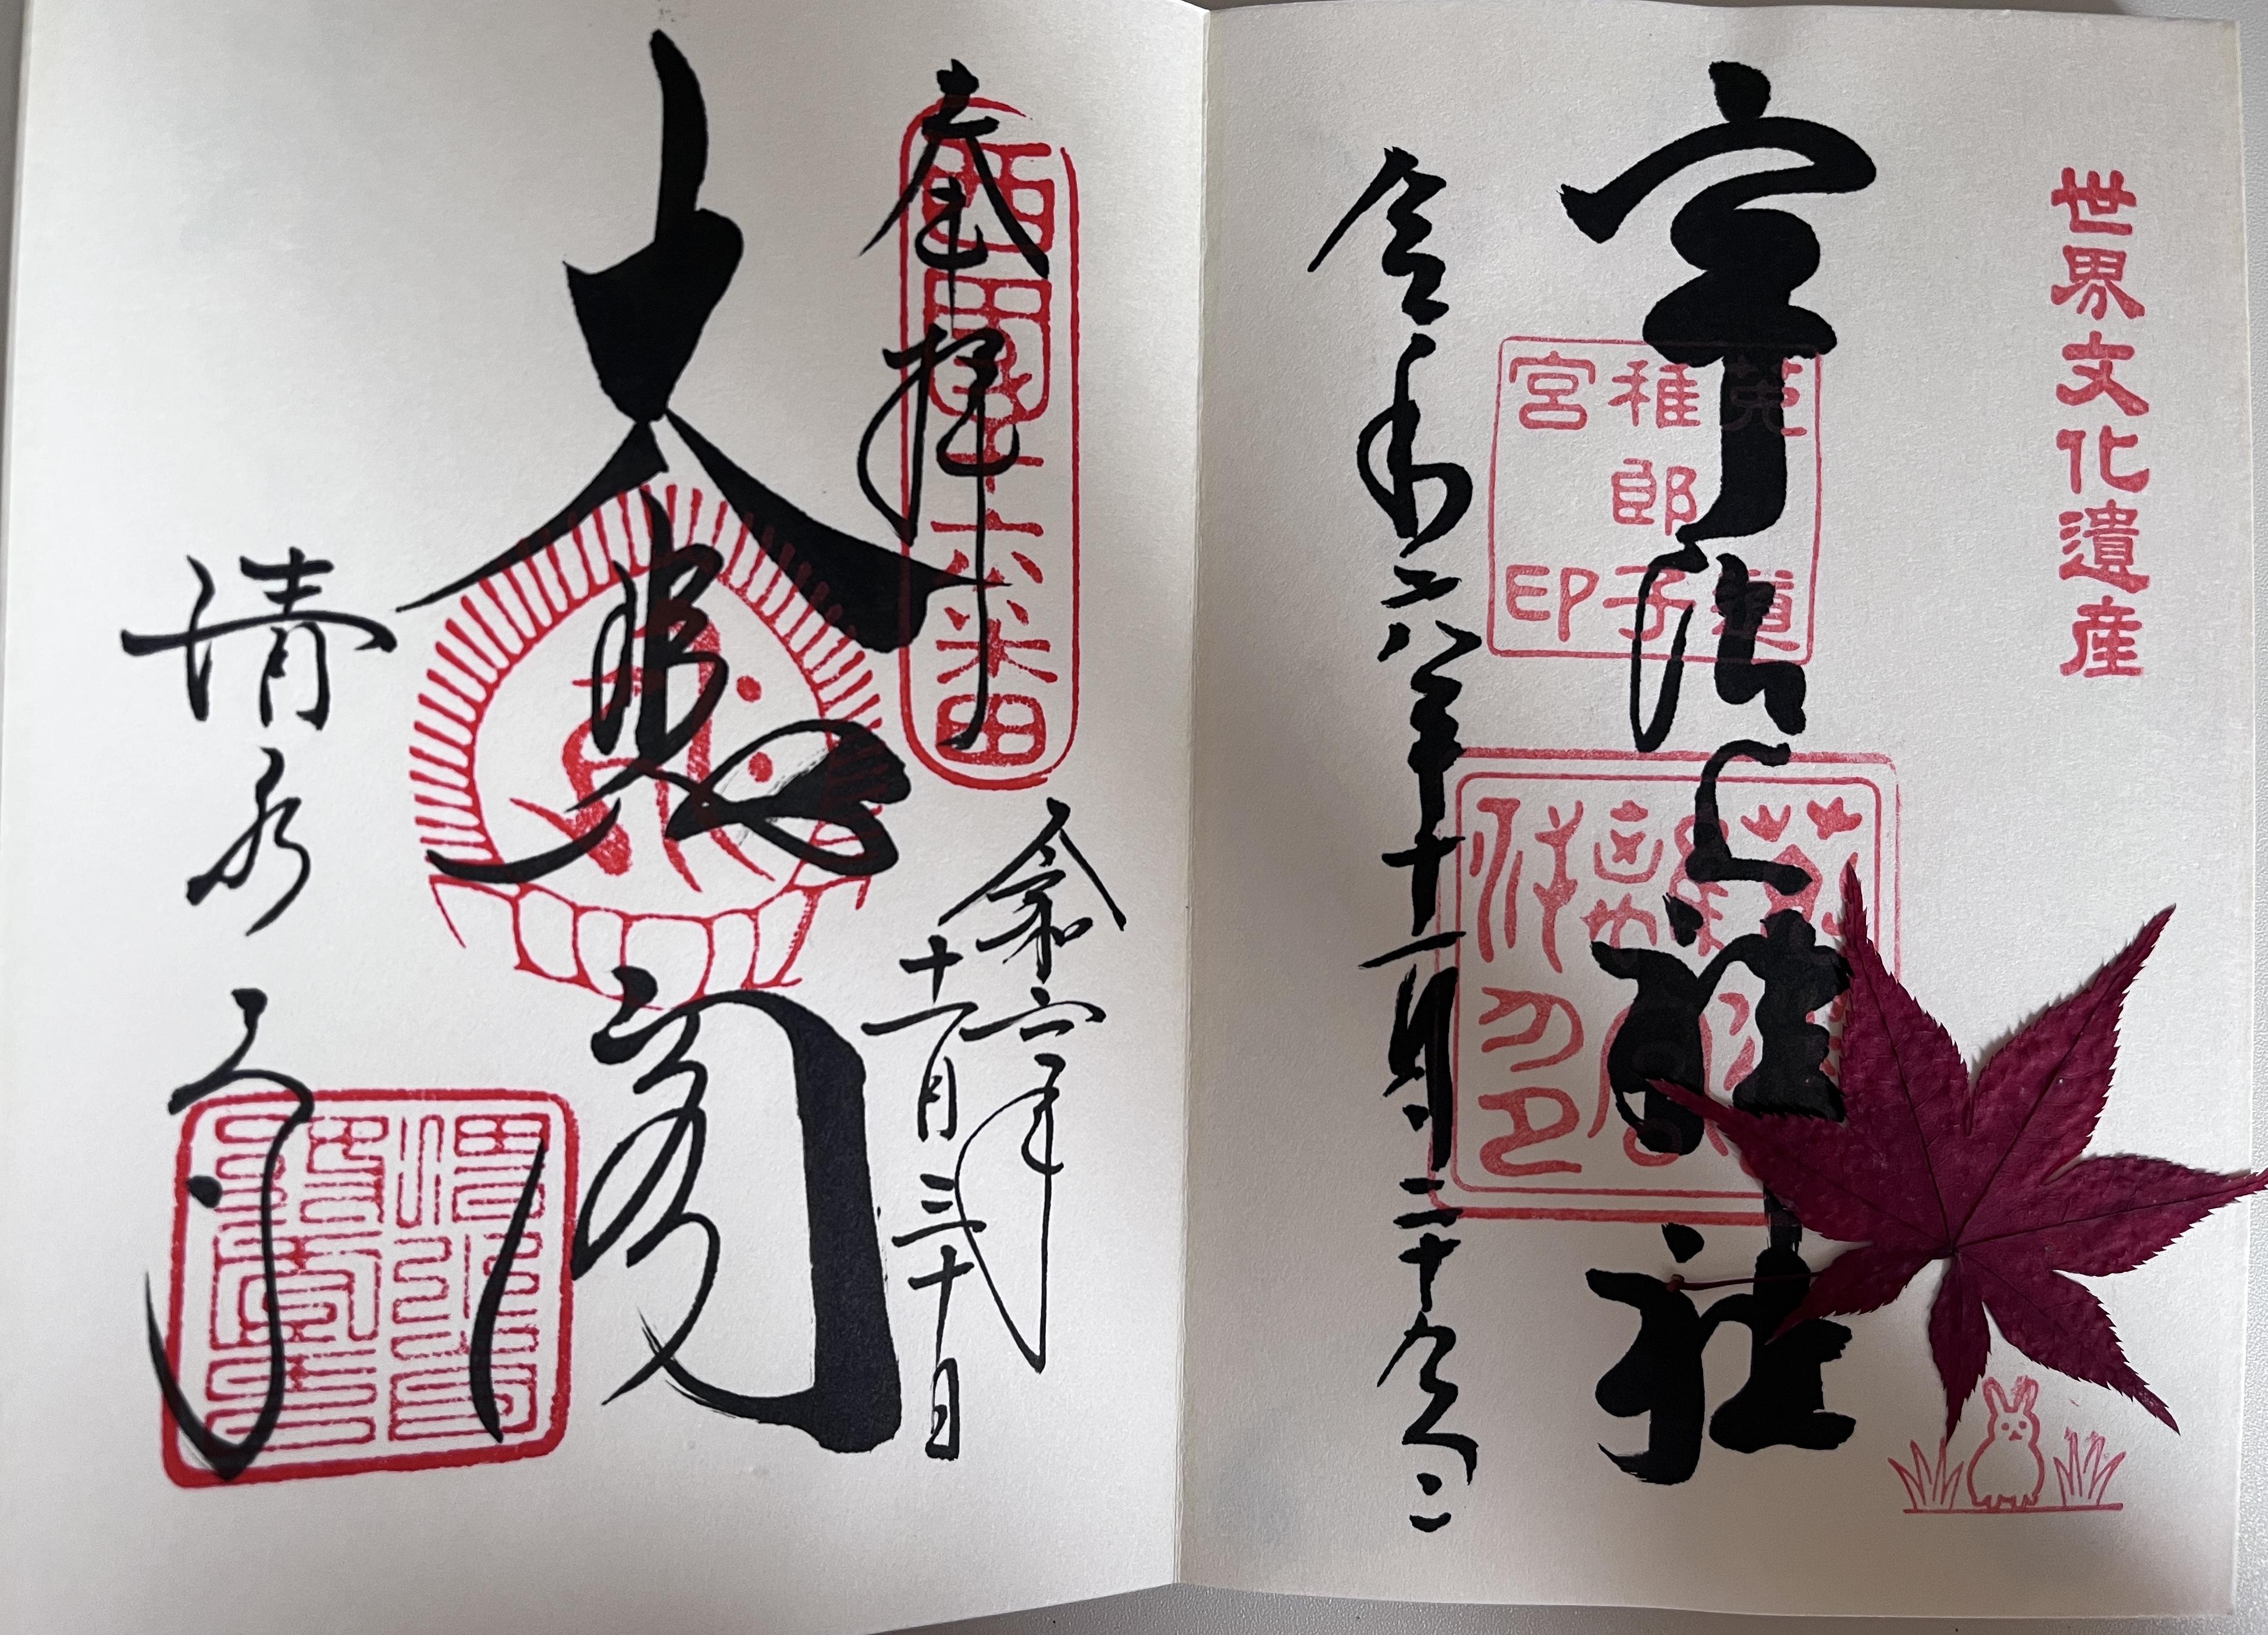 世界文化遺産
宇治上神社
菟道
稚郎子
宮印
令和六年十一月二十九日
奉拝
西国十六番
令和六年
十一月三十日
大悲閣
清水寺